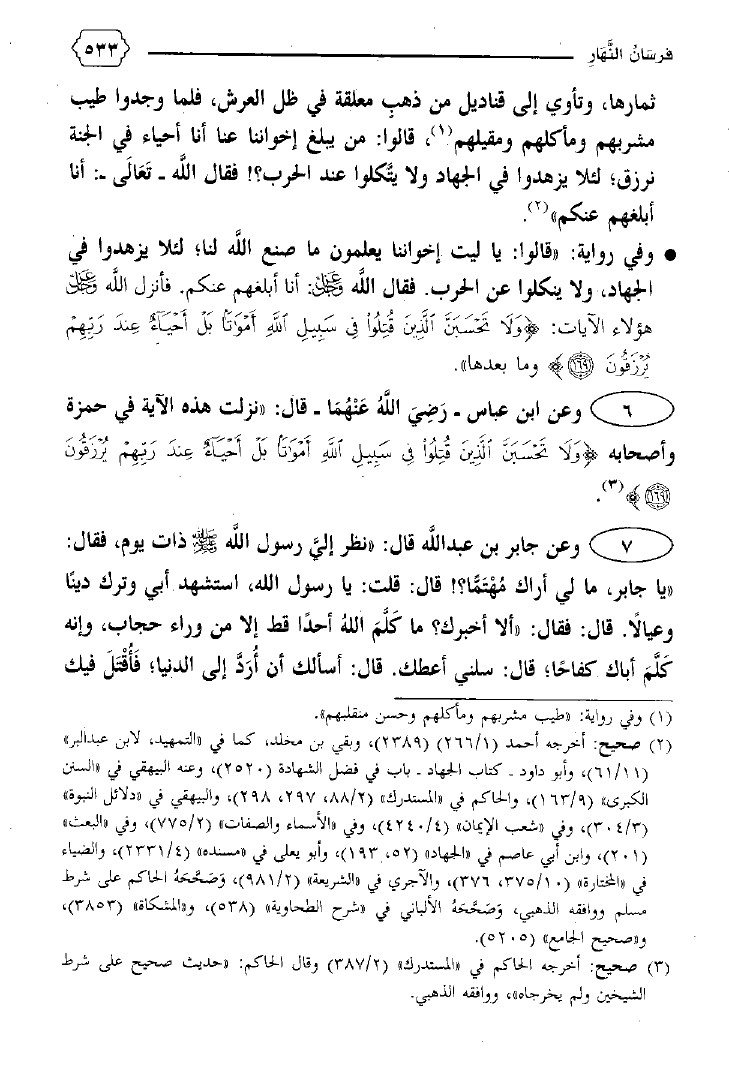 فرسَانُ النَّهَارِ ٥٣٣
ثمارها، وتأوي إلى قناديل من ذهبٍ معلقة في ظل العرش، فلما وجدوا طيب
مشربهم ومأكلهم ومقيلهم(١)، قالوا: من يبلغ إخواننا عنا أنا أحياء في الجنة
نرزق؛ لئلا يزهدوا في الجهاد ولا يتَّكلوا عند الحرب؟! فقال اللَّه ـ تَعَالَى ـ: أنا
أبلغهم عنكم»(٢).
● وفي رواية: «قالوا: يا ليت إخواننا يعلمون ما صنع اللَّه لنا؛ لئلا يزهدوا في
الجهاد، ولا ينكلوا عن الحرب. فقال اللَّه عَزَّ وَجَلَّ: أنا أبلغهم عنكم. فأنزل اللَّه عَزَّ وَجَلَّ
هؤلاء الآيات: ﴿وَلَا تَحْسَبَنَّ ٱلَّذِينَ قُتِلُوا۟ فِى سَبِيلِ ٱللَّهِ أَمْوَٰتًۢا بَلْ أَحْيَآءٌ عِندَ رَبِّهِمْ
يُرْزَقُونَ ١٦٩﴾ وما بعدها».
٦ وعن ابن عباس ـ رَضِيَ اللَّهُ عَنْهُمَا ـ قال: «نزلت هذه الآية في حمزة
وأصحابه ﴿وَلَا تَحْسَبَنَّ ٱلَّذِينَ قُتِلُوا۟ فِى سَبِيلِ ٱللَّهِ أَمْوَٰتًۢا بَلْ أَحْيَآءٌ عِندَ رَبِّهِمْ يُرْزَقُونَ
١٦٩﴾(٣).
٧ وعن جابر بن عبداللَّه قال: «نظر إليَّ رسول اللَّه ﷺ ذات يوم، فقال:
«يا جابر، ما لي أراك مُهْتَمًّا؟! قال: قلت: يا رسول الله، استشهد أبي وترك دينًا
وعيالًا. قال: فقال: «ألا أخبرك؟ ما كَلَّمَ اللهُ أحدًا قط إلا من وراء حجاب، وإنه
كَلَّمَ أباك كفاحًا؛ قال: سلني أعطك. قال: أسألك أن أُرَدَّ إلى الدنيا؛ فَأُقْتَلَ فيك
(١) وفي رواية: «طيب مشربهم ومأكلهم وحسن منقلبهم».
(٢) صحيح: أخرجه أحمد (٢٦٦/١) (٢٣٨٩)، وبقي بن مخلد، كما في «التمهيد، لابن عبدالبر»
(٦١/١١)، وأبو داود ـ كتاب الجهاد ـ باب في فضل الشهادة (٢٥٢٠)، وعنه البيهقي في «السنن
الكبرى» (١٦٣/٩)، والحاكم في «المستدرك» (٨٨/٢، ٢٩٧، ٢٩٨)، والبيهقي في «دلائل النبوة»
(٣٠٤/٣)، وفي «شعب الإيمان» (٤٢٤٠/٤)، وفي «الأسماء والصفات» (٧٧٥/٢)، وفي «البعث»
(٢٠١)، وابن أبي عاصم في «الجهاد» (٥٢، ١٩٣)، وأبو يعلى في «مسنده» (٢٣٣١/٤)، والضياء
في «المختارة» (٣٧٥/١٠، ٣٧٦)، والآجري في «الشريعة» (٩٨١/٢)، وَصَحَّحَهُ الحاكم على شرط
مسلم ووافقه الذهبي، وَصَحَّحَهُ الألباني في «شرح الطحاوية» (٥٣٨)، و«المشكاة» (٣٨٥٣)،
و«صحيح الجامع» (٥٢٠٥).
(٣) صحيح: أخرجه الحاكم في «المستدرك» (٣٨٧/٢) وقال الحاكم: «حديث صحيح على شرط
الشيخين ولم يخرجاه»، ووافقه الذهبي.